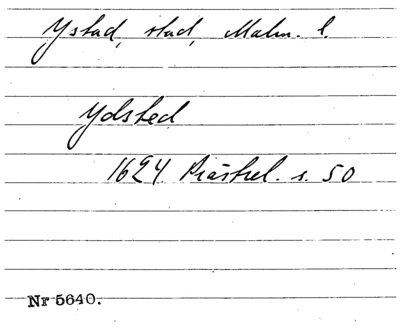 Ystad, stad, Malm. l.
Ydsted
1624 Präsrel. s. 50
Nr 5640.